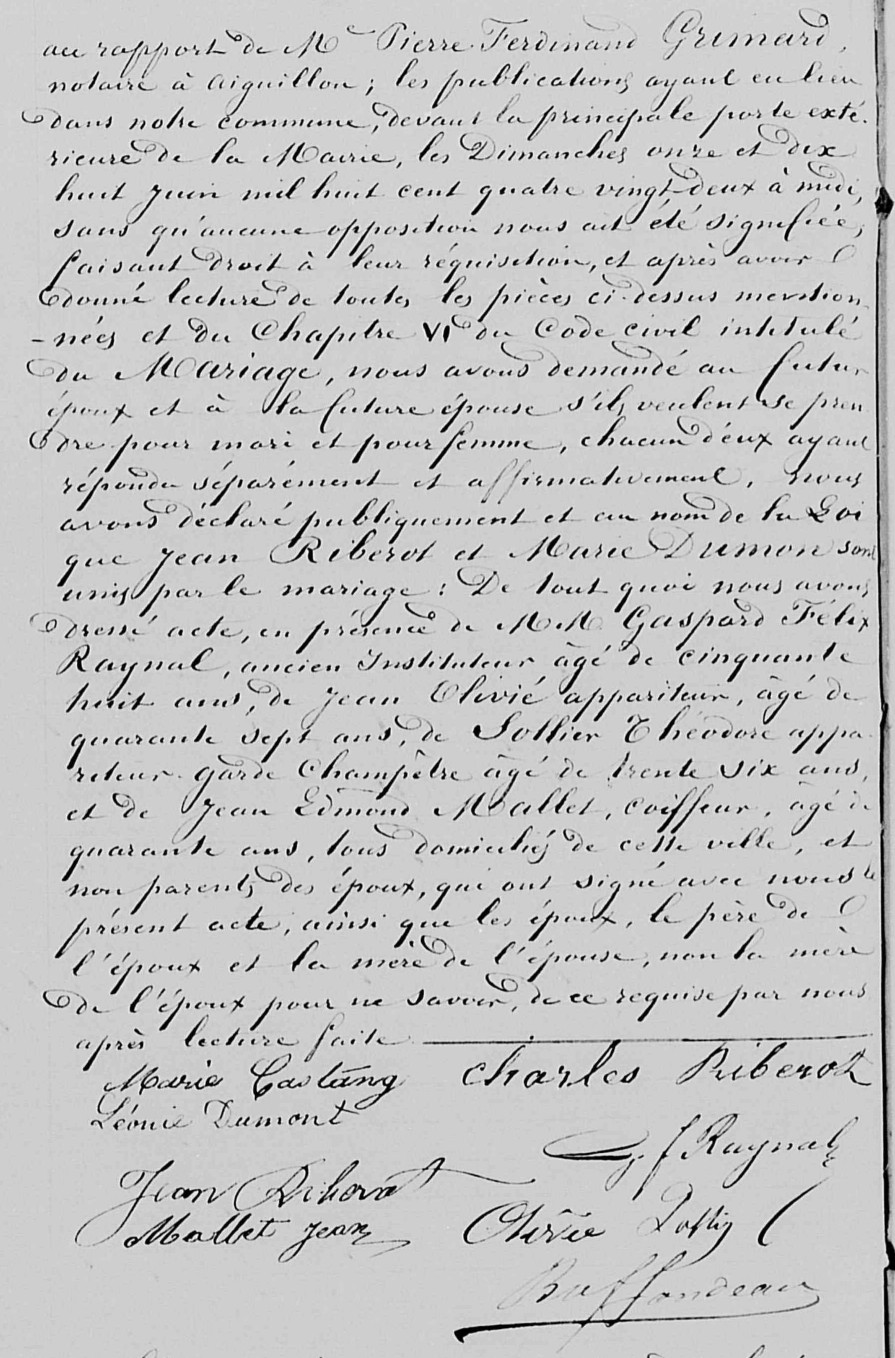 au rapport de Me Pierre Ferdinand Grimard,
notaire à Aiguillon; les publications ayant eu lieu
dans notre commune, devant la principale porte exté-
rieure de la Mairie, les Dimanches onze et dix
huit Juin mil huit cent quatre vingt deux à midi,
sans qu'aucune opposition nous ait été signifiée,
faisant droit à leur réquisition, et après avoir
donné lecture de toutes les pièces ci-dessus mention-
-nées et du Chapitre VI du Code civil intitulé
du Mariage, nous avons demandé au futur
époux et à la future épouse s'ils veulent se pren
dre pour mari et pour femme, chacun d'eux ayant
répondu séparément et affirmativement, nous
avons déclaré publiquement et au nom de la Loi
que Jean Riberot et Marie Dumon sont
unis par le mariage : De tout quoi nous avons
dressé acte, en présence de M.M. Gaspard Félix
Raynal, ancien Instituteur âgé de cinquante
huit ans, de Jean Olivié appariteur, âgé de
quarante sept ans, de Sollier Théodore appa-
riteur-garde Champêtre âgé de trente six ans,
et de Jean Edmond Mallet, coiffeur, âgé de
quarante ans, tous domiciliés de cette ville, et
non parents des époux, qui ont signé avec nous le
présent acte, ainsi que les époux, le père de
l'époux et la mère de l'épouse, non la mère
de l'époux pour ne savoir, de ce requise par nous
après lecture faite
Marie Castang Charles Riberot
Léonie Dumont
G. f Raynal
Jean Riberot
Mallet Jean Olivié
Buffandeau